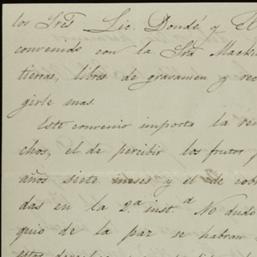 los Sres Lic. Dondé y El
convenido con la Sra Mack
tierras, libres de gravamen y rec
girle mas.
Este convenio importa la ren
chos, el de percibir los frutos
años siete meses y el de cobr
das en la 2.ª inst.ª No dudo
quio de la paz se habran